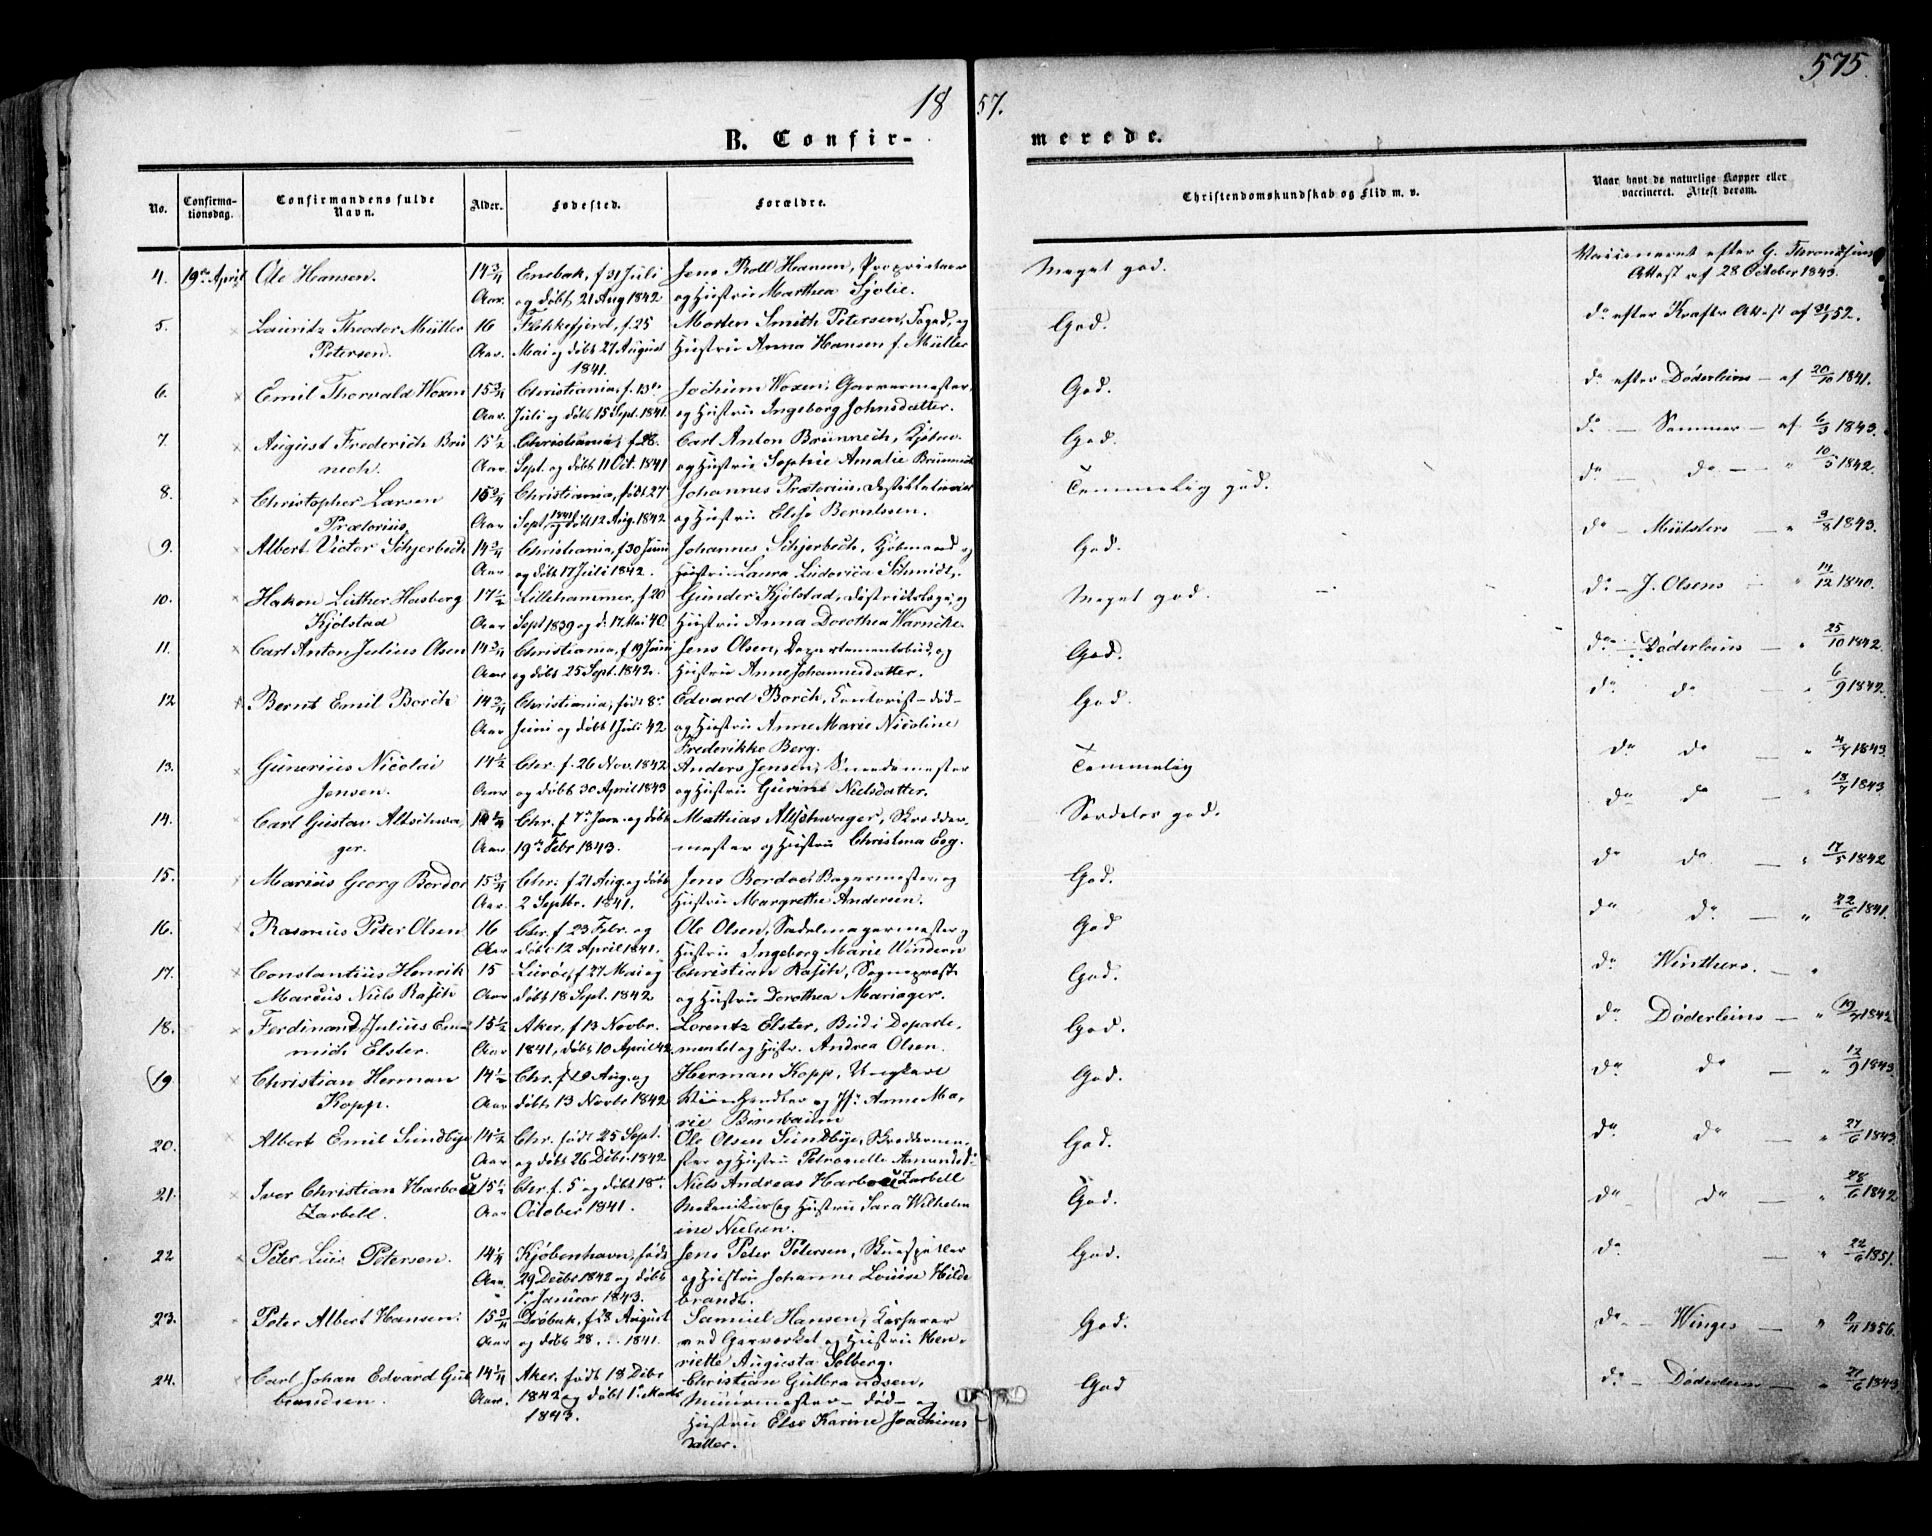 575.
18 57.
B. Confir- merede.
No. Confirma- tionsdag. Confirmandens fulde Navn. Alder. Fødested. Forældre. Christendomskundskab og Flid m. v. Naar havt de naturlige Kopper eller vaccineret. Attest derom.
4. 19de April Ole Hansen. 14 3/4 Enebak, f. 31 Juli Jens Roll Hansen, Proprietær Meget god. Vaccineret efter G. Throndsens
Aar. og døbt 21 Aug 1842 og Hustru Marthea Sjølie. Attest af 28 October 1843.
5. Lauritz Theodor Müller 16 Flekkefjord, f. 25 Morten Smith Petersen, Foged, og God. do efter Krafts Attest af 31/7 52.
Petersen. Aar. Mai og døbt 27 August Hustru Anna Hansen f. Müller
1841.
6. Emil Thorvald Woxen 15 3/4 Christiania, f. 13de Jochum Woxen, Garvermester, God. do efter Døderleins — af 20/10 1841.
Aar. Juli og døbt 15 Sept. 1841. og Hustru Ingeborg Johnsdatter.
7. August Frederich Brü 15 1/2 Christiania, f. 28. Carl Anton Brünnech, God. do — Sommer — af 6/3 1843.
nech. Aar. Sept. og døbt 11 Oct. 1841 og Hustru Sophie Amalie Brünnech
8. Christopher Larsen 15 3/4 Christiania, født 27 Johannes Prætorius, Destillateur Temmelig god. do do — " 10/5 1842.
Prætorius, Aar Sept. 1841 og døbt 12 Aug. 1842 og Hustru Elise Berntsen.
9. Albert Victor Schjerbech 14 3/4 Christiania, f. 30 Juni Johannes Schjerbech, Kjøbmand og God. do — Münsters — " 3/8 1843.
Aar. og døbt 17 Juli 1842. Hustru Laura Ludovica Schmidt.
10. Hakon Luther Hasberg 17 1/2 Lillehammer, f. 20 Gunder Kjølstad, Districtslæge, og Meget god. do — J. Olsens " 14/12 1840.
Kjølstad Aar Sept 1839 og d. 17 Mai 40. Hustru Anna Dorothea Warncke.
11. Carl Anton Julius Olsen 14 3/4 Christiania, f. 19 Juni Jens Olsen, Departementsbud, og God. do — Døderleins — " 25/10 1842.
Aar og døbt 25 Sept. 1842. Hustru Anne Johannesdatter.
12 Bernt Emil Borch 14 3/4 Christiania, født 8de Edvard Borch, Contorist — død — God. do do — " 6/9 1842.
Aar Juni og døbt 1 Juli 42 og Hustru Anne Marie Nicoline
Frederikke Berg.
13. Gunerius Nicolai 14 1/2 Chr. f. 26 Nov. 1842 Anders Jensen, Smedemester Temmelig do do — " 4/7 1843.
Jensen. Aar og døbt 30 April 1843 og Hustru Gurine Nielsdatter.
14. Carl Gustav Altschwa, 14 1/4 Chr. f 7de Jan. og døbt Mathias Altschwager, Skredder- Særdeles god. do do — " 18/7 1843
ger. Aar. 19de Febr 1843. mester og Hustru Christina Eeg.
15. Marius Georg Bordoe 15 3/4 Chr. f. 21 Aug. og døbt Jens Bordoe, Bagermester, og God. do do — " 17/5 1842
Aar. 2 Septbr. 1841. Hustru Margrethe Andersen.
16. Rasmus Peter Olsen 16 Chr. f. 23 Febr. og Ole Olsen, Sadelmagermester og God do do — " 22/6 1841.
Aar døbt 12 April 1841. Hustru Ingeborg Marie Winderen
17. Constantius Henrik 15 Lurøe, f. 27 Mai og Christian Rasch, Sogneprest God. do Winthers. — "
Marcus Niels Rasch Aar døbt 18 Sept. 1842. og Hustru Dorothea Mariager.
18. Ferdinand Julius Em 15 1/2 Aker, f. 13 Novbr. Lorentz Elster, Bud i Departe, God. do Døderleins — " 19/7 1842
mich Elster. Aar. 1841, døbt 10 April 42 mentet og Hustr. Andrea Olsen.
19 Christian Herman 14 1/2 Chr. f. 29 Aug. og Herman Kopp, God. do do — " 12/9 1843.
Kopp. Aar døbt 13 Novbr 1842 og Anne Ma,
rie Birnbaum
20. Albert Emil Sundbye 14 1/2 Chr. født 25 Sept. Ole Olsen Sundbye, Skredderme, God. do do — " 27/6 1843.
Aar og døbt 26 Debr. 1842 ster og Hustru Petronelle Amundsd.
21. Iver Christian Harboe 15 1/2 Chr. f. 5 og døbt 18de Niels Andreas Harboe Zarbell God. do do — " 28/6 1842
Zarbell. Aar October 1841. Mekanikus og Hustru Sara Wilhelm
ine Nielsen.
22 Peter Luis Petersen. 14 1/4 Kjøbenhavn, født Jens Peter Petersen, Skuespiller God. do — " 22/6 1851.
Aar. 29 Decbr 1842 og døbt og Hustru Johanne Louise Hilde
1. Januar 1843. brandt.
23. Peter Albert Hansen. 15 3/4 Drøbak, f. 28 August Samuel Hansen, Kasserer God. do — Winges — " 11/11 1856.
Aar. og døbt 28 . . . 1841. ved Gasværket og Hustru Hen,
riette Augusta Solberg.
24. Carl Johan Edvard Gul 14 1/4 Aker, født 18 Debr Christian Gulbrandsen, God do — Døderleins — " 27/6 1843
brandsen. Aar. 1842 og døbt 1. Marts Muurmester — død — og
1843. Hustru Else Karine Joachims
datter.